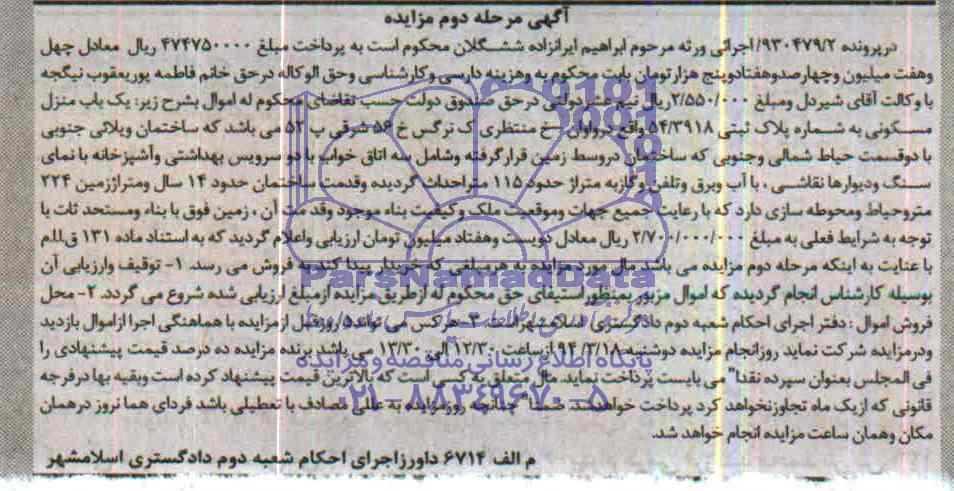 آگهی مرحله دوم مزایده
درپرونده ۹۳۰۴۷۹/۲/اجرائی ورثه مرحوم ابراهیم ایرانزاده ششگلان محکوم است به پرداخت مبلغ ۴۷۴۷۵۰۰۰۰ ریال معادل چهل
وهفت میلیون وچهارصدوهفتادوپنج هزارتومان بابت محکوم به وهزینه دارسی وکارشناسی وحق الوکاله درحق خانم فاطمه پوریعقوب نیگجه
با وکالت آقای شیردل ومبلغ ۲/۵۵۰/۰۰۰ ریال نیم عشردولتی درحق صندوق دولت حسب تقاضای محکوم له اموال بشرح زیر: یک باب منزل
مسکونی به شماره پلاک ثبتی ۵۴/۳۹۱۸ واقع درواوان خ منتظری ک نرگس خ ۵۴ شرقی پ ۵۲ می باشد که ساختمان ویلائی جنوبی
با دوقسمت حیاط شمالی وجنوبی که ساختمان دروسط زمین قرارگرفته وشامل سه اتاق خواب با دو سرویس بهداشتی وآشپزخانه با نمای
سنگ ودیوارها نقاشی ، با آب وبرق وتلفن وگازبه متراژ حدود ۱۱۵ متراحداث گردیده وقدمت ساختمان حدود ۱۴ سال ومتراژزمین ۲۲۴
مترو حیاط ومحوطه سازی دارد که با رعایت جمیع جهات وموقعیت ملک وکیفیت بناء موجود وقدمت آن ، زمین فوق با بناء ومستحدثات با
توجه به شرایط فعلی به مبلغ ۲/۷۰۰/۰۰۰/۰۰۰ ریال معادل دویست وهفتاد میلیون تومان ارزیابی واعلام گردید که به استناد ماده ۱۳۱ ق.ا.ا.م
با عنایت به اینکه مرحله دوم مزایده می باشد مال مورد مزایده به هرمبلغی که خریدار پیدا کند به فروش می رسد. ۱- توقیف وارزیابی آن
بوسیله کارشناس انجام گردیده که اموال مزبور به منظوراستیفای حق محکوم له ازطریق مزایده ازمبلغ ارزیابی شده شروع می گردد. ۲- محل
فروش اموال : دفتر اجرای احکام شعبه دوم دادگستری اسلامشهراست. ۳- هرکس می تواند روزقبل ازمزایده با هماهنگی اجرا ازاموال بازدید
ودرمزایده شرکت نماید روزانجام مزایده دوشنبه ۹۴/۳/۱۸ از ساعت ۱۲/۳۰ الی ۱۳/۳۰ می باشد برنده مزایده ده درصد قیمت پیشنهادی را
فی المجلس بعنوان سپرده نقدا" می بایست پرداخت نماید مال متعلق به کسی است که بالاترین قیمت پیشنهاد کرده است وبقیه بها درفرجه
قانونی که ازیک ماه تجاوزنخواهد کرد پرداخت خواهد شد ضمنا" چنانچه روزمزایده به عللی مصادف با تعطیلی باشد فردای هما نروز درهمان
مکان وهمان ساعت مزایده انجام خواهد شد.
م الف ۶۷۱۴ داورزاجرای احکام شعبه دوم دادگستری اسلامشهر
ParsNamadData
پایگاه اطلاع رسانی مناقصه و مزایده
۰۲۱-۸۸۳۴۹۶۷۰-۵